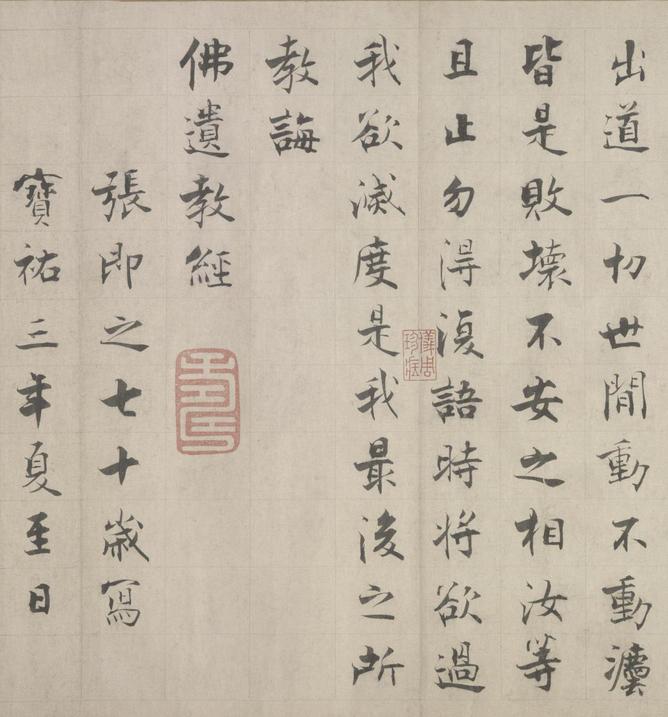 出道一切世閒動不動灋
皆是敗壞不安之相汝等
且止勿得復語時將欲過
我欲滅度是我最後之所
教誨
佛遺教經
張即之七十歲寫
寶祐三年夏至日